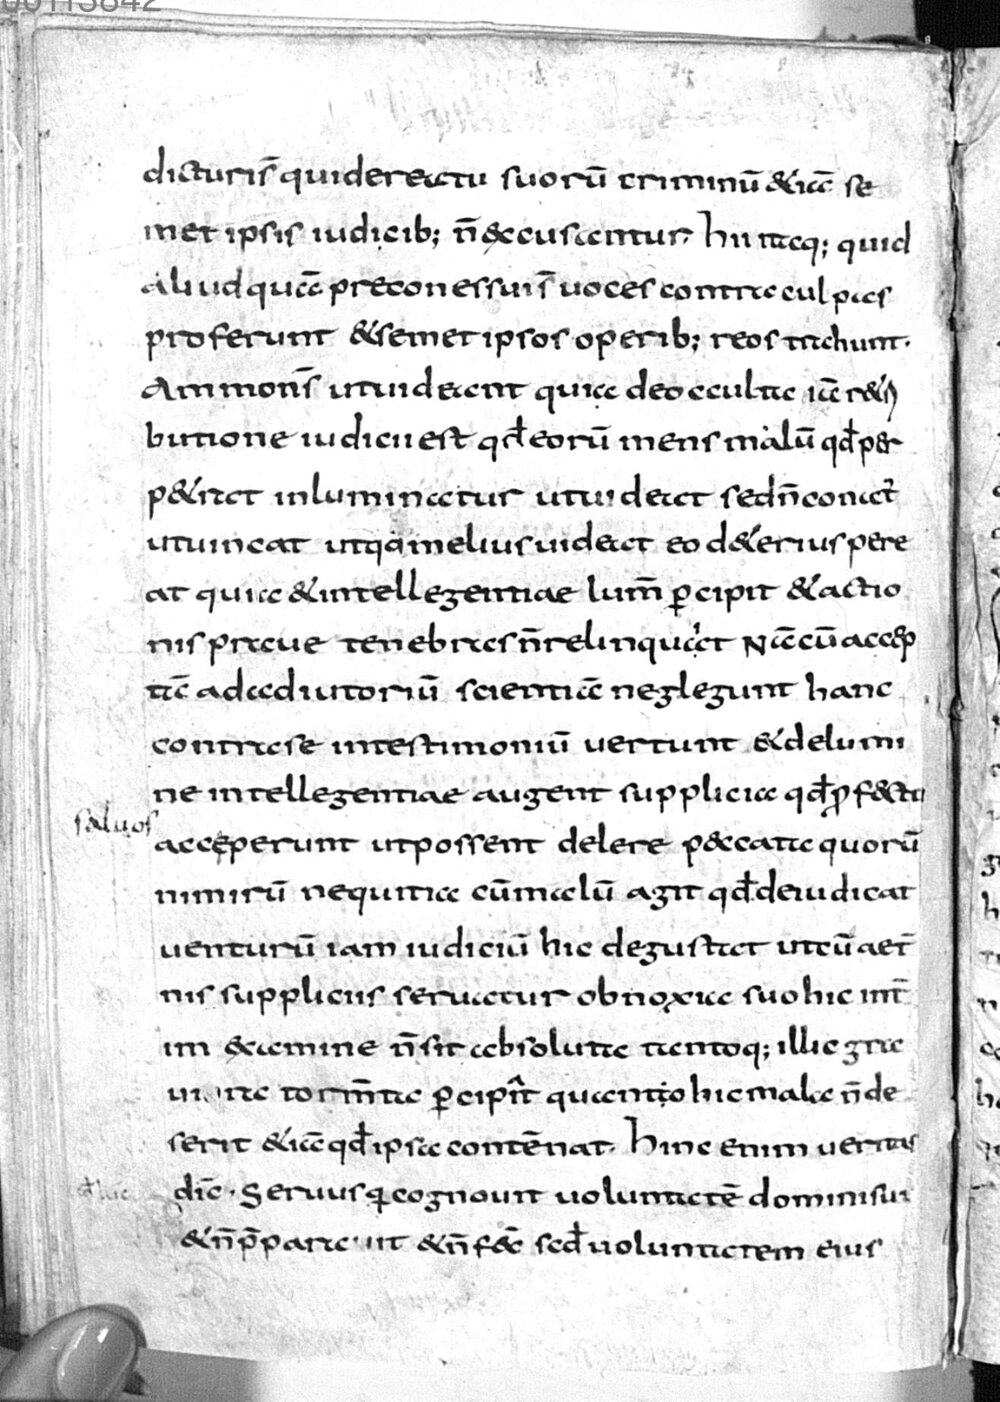 00113842
dicturis̄ quidereatu suorū criminū &iā se
met ipsis iudicib; n̄ excusantur hii itaq; quid
aliud quā preconessuis̄ uoces contra culpas
proferunt &semet ipsos operib; reos trahunt.
Ammonis̄ utuideant quia deo occulta iā r&ri
butione iudicii est qđ eorū mens malū qđ per
p&rat inluminatur utuideat sedn̄ conat̄
utuincat utqa melius uideat eo d&erius pere
at quia &intellegentiae lum̄ ꝑcipit &actio
nis praue tenebras n̄ relinquat Nā cū accep
tā adadiutoriū scientiā neglegunt hanc
contrase intestimoniū uertunt &delumi
ne intellegentiae augent supplicia qđ ꝓfecto
saluos
acceperunt utpossent delere peccata quorū
nimirū nequitia cūmalū agit qđ deiudicat
uenturū iam iudiciū hic degustat utcū aet̄
nis suppliciis seruatur obnoxia suo hic int̄
im examine n̄ sit absoluta tantoq; illic gra
uiora torm̄ta ꝑcipit̄ quanto hic mala n̄ de
serit &iā qđ ipsa contēnat. hinc enim ueritas
dic̄. Seruus qi cognouit uoluntatē domini sui
&n̄ p̄parauit &n̄ fec̄ scđ uoluntatem eius